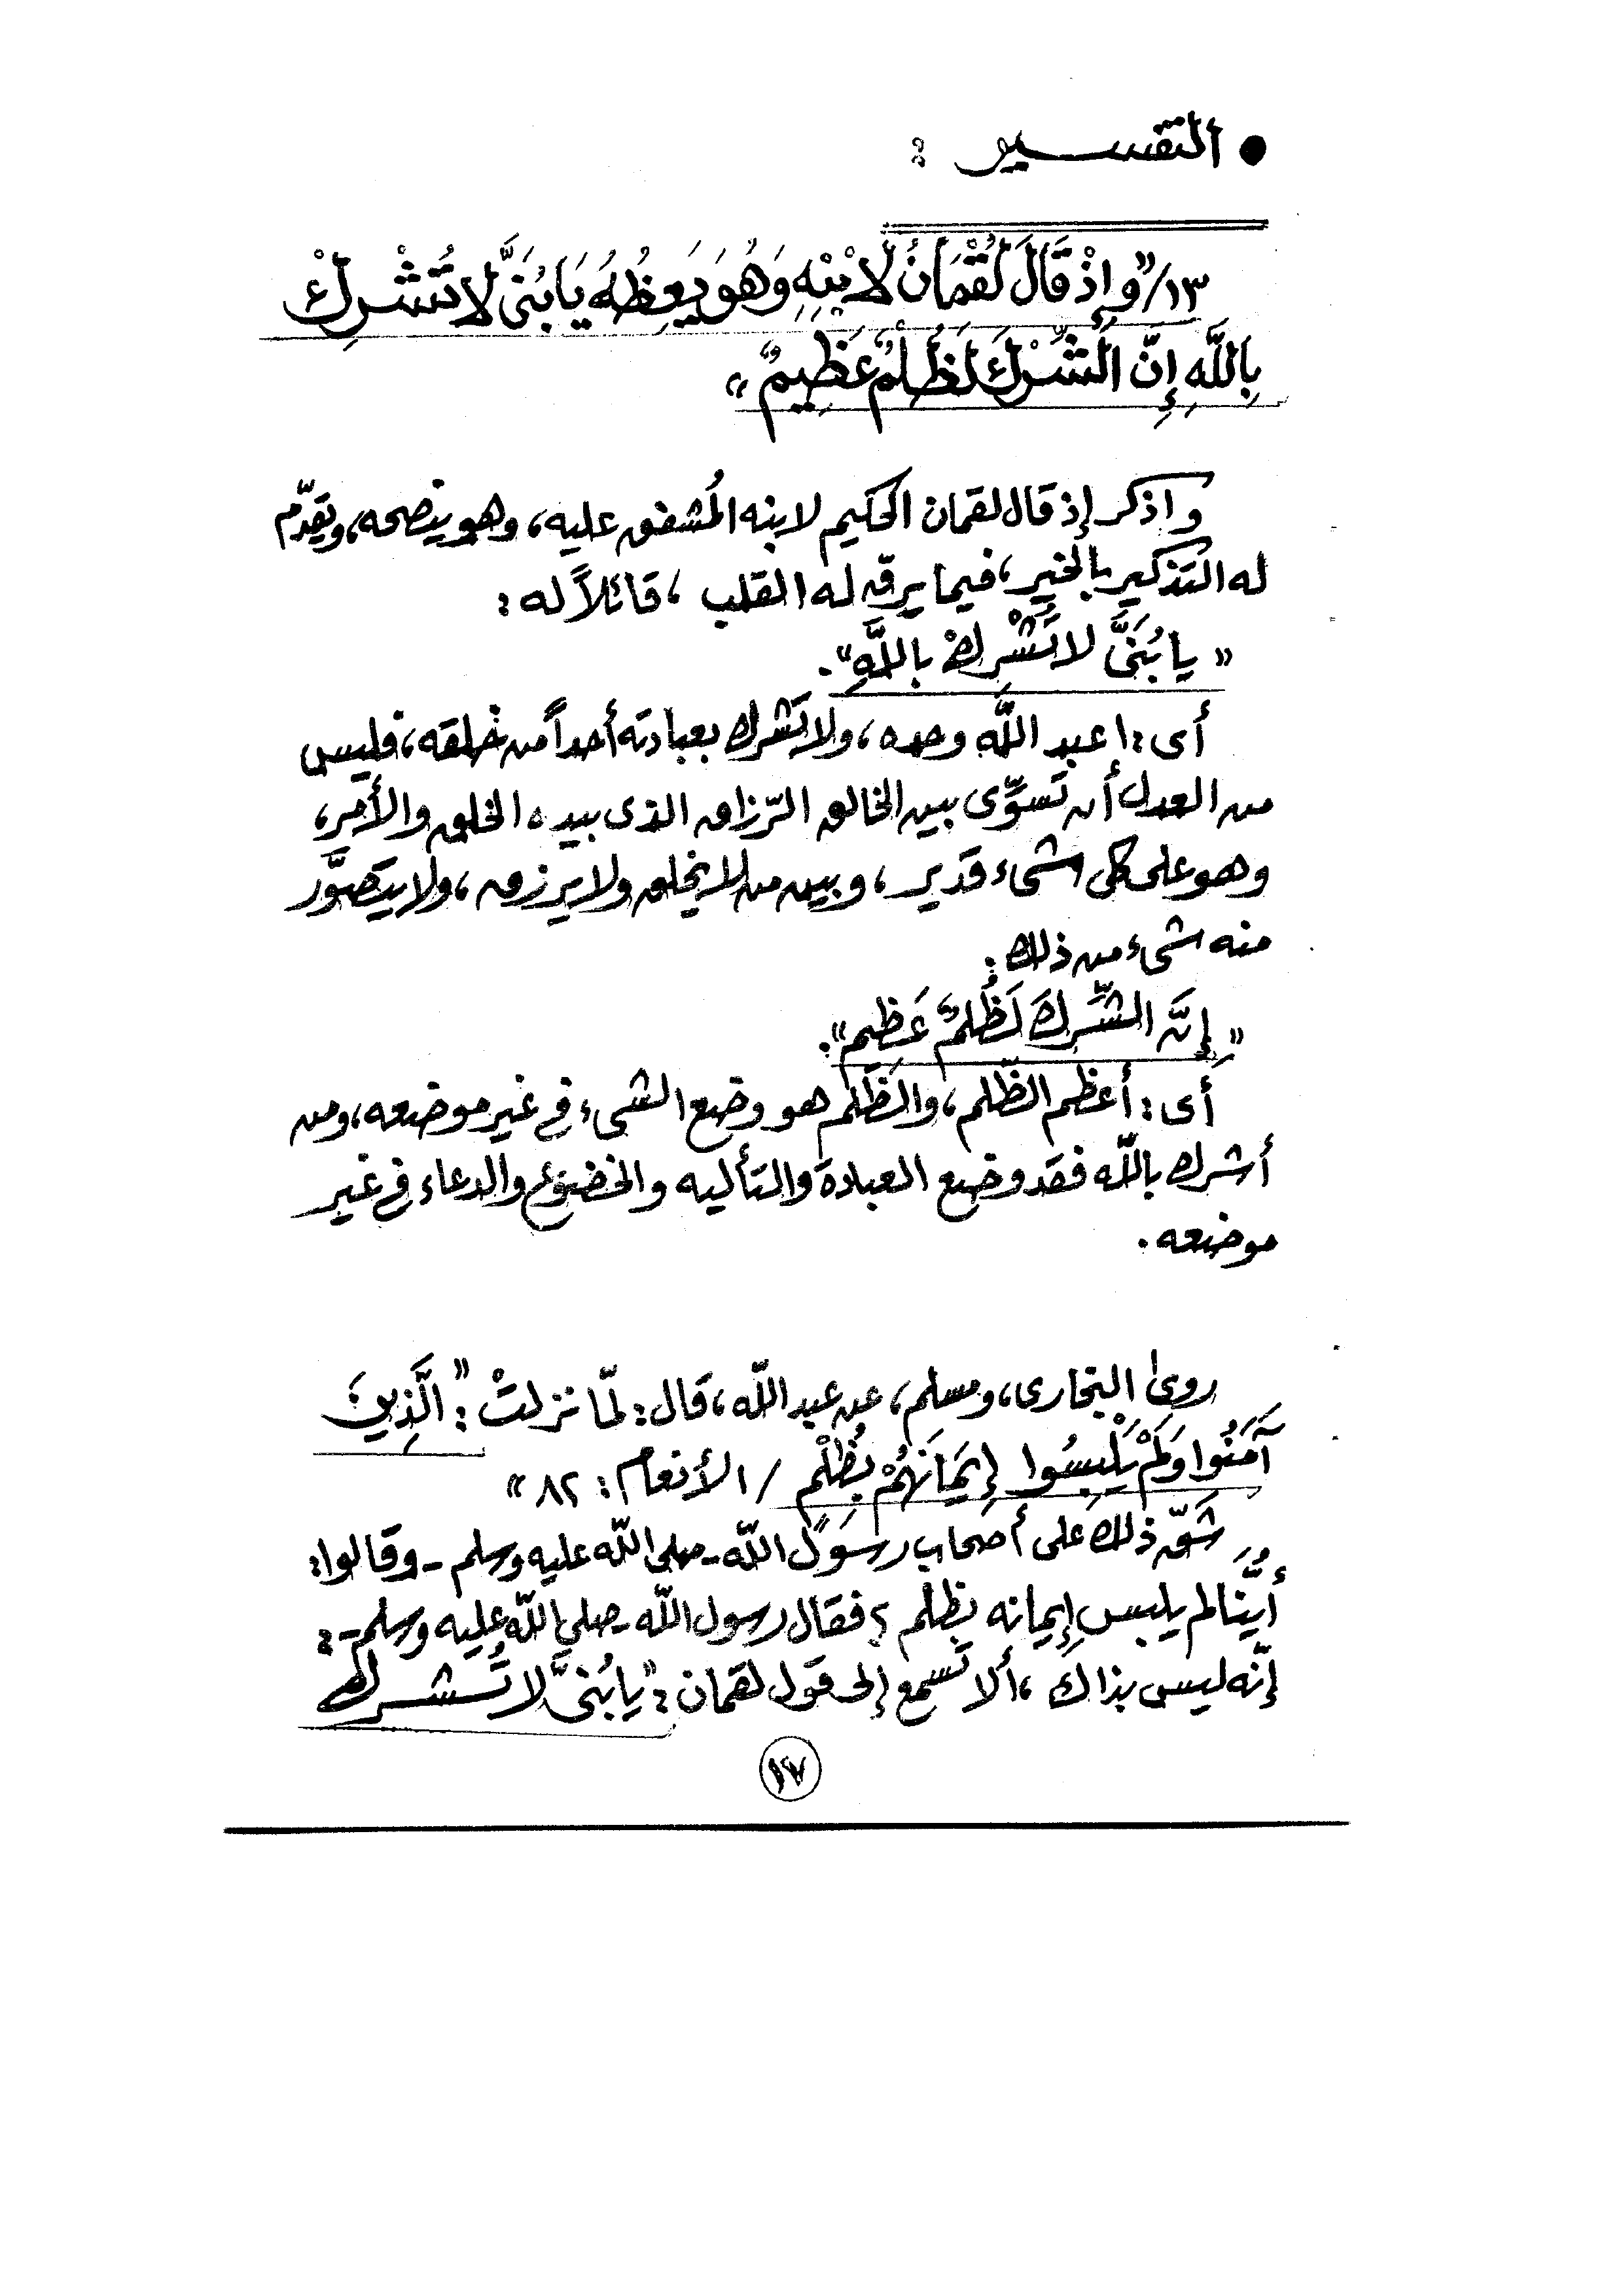 ● التفسير :
١٣/ "وَإِذْ قَالَ لُقْمَانُ لابْنِهِ وَهُوَ يَعِظُهُ يَا بُنَىَّ لا تُشْرِكْ
بِاللَّهِ إِنَّ الشِّرْكَ لَظُلْمٌ عَظِيمٌ"
واذكر إذ قال لقمان الحكيم لابنه المُشفق عليه، وهو ينصحه، ويقدّم
له التذكير بالخير، فيما يرقّ له القلب، قائلاً له :
"يا بُنَىَّ لا تُشْرِكْ باللَّهِ".
أى : اعبد اللَّه وحده، ولا تشرك بعبادته أحداً من خلقه، فليس
من العدل أن تسوِّى بين الخالق الرّزاق الذى بيده الخلق والأمر،
وهو على كل شىء قدير، وبين من لا يخلق ولا يرزق، ولا يتصوَّر
منه شىء من ذلك :
"إِنَّ الشِّركَ لَظُلمٌ عَظيم".
أى : أعظم الظّلم، والظّلم هو وضع الشىء فى غير موضعه، ومن
أشرك باللّه فقد وضع العبادة والتأليه والخضوع والدعاء فى غير
موضعه.
روى البخارى، ومسلم، عن عبد اللّه، قال : لمّا نزلتْ : "الَّذِينَ
آمَنُوا وَلَمْ يَلْبِسُوا إِيمَانَهُمْ بِظُلْمٍ / الأنعام : ٨٢"
شَقّ ذلك على أصحاب رسول اللّه ـ صلى اللّه عليه وسلم ـ وقالوا :
أيُّنا لم يلبس إيمانه بظلم ؟ فقال رسول اللّه ـ صلى اللّه عليه وسلم ـ :
إنّه ليس بذاك، ألا تسمع إلى قول لقمان : "يا بُنىَّ لا تُشرك
١٧